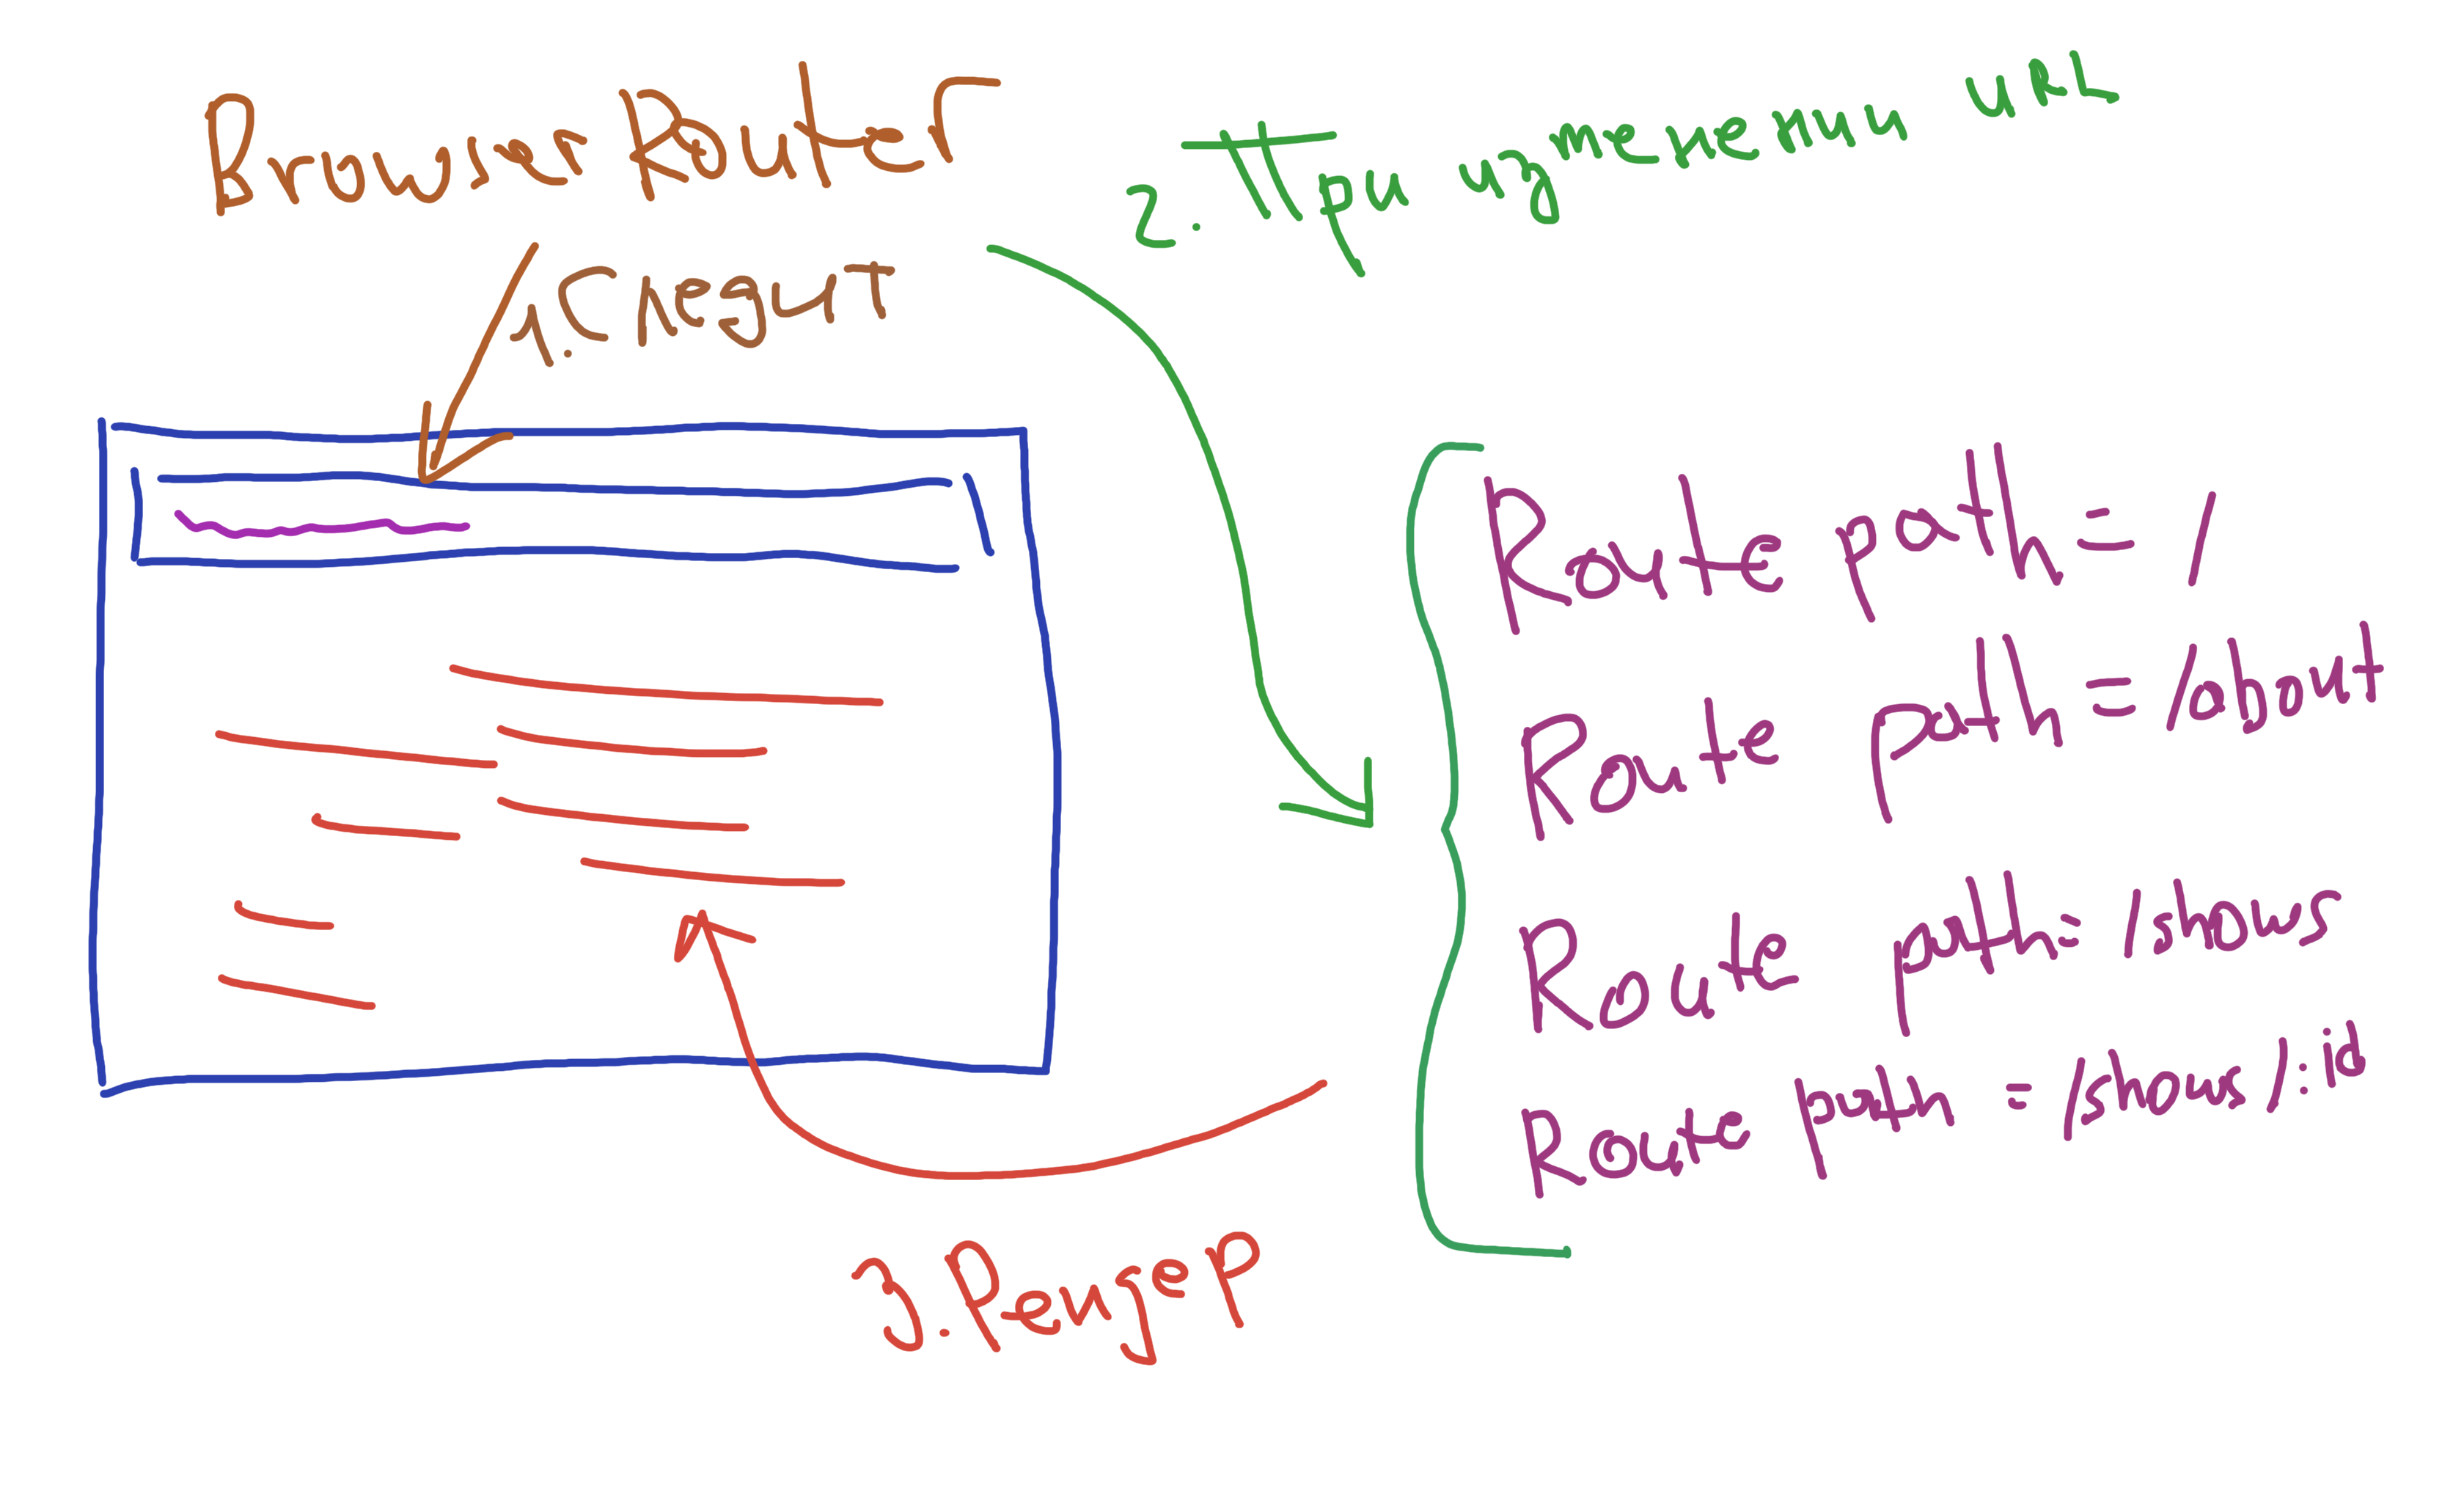 Browser Router
2. При изменении URL
1. Следит
Route path = /
Route path = /about
Route path = /shows
Route path = /shows/:id
3. Рендер